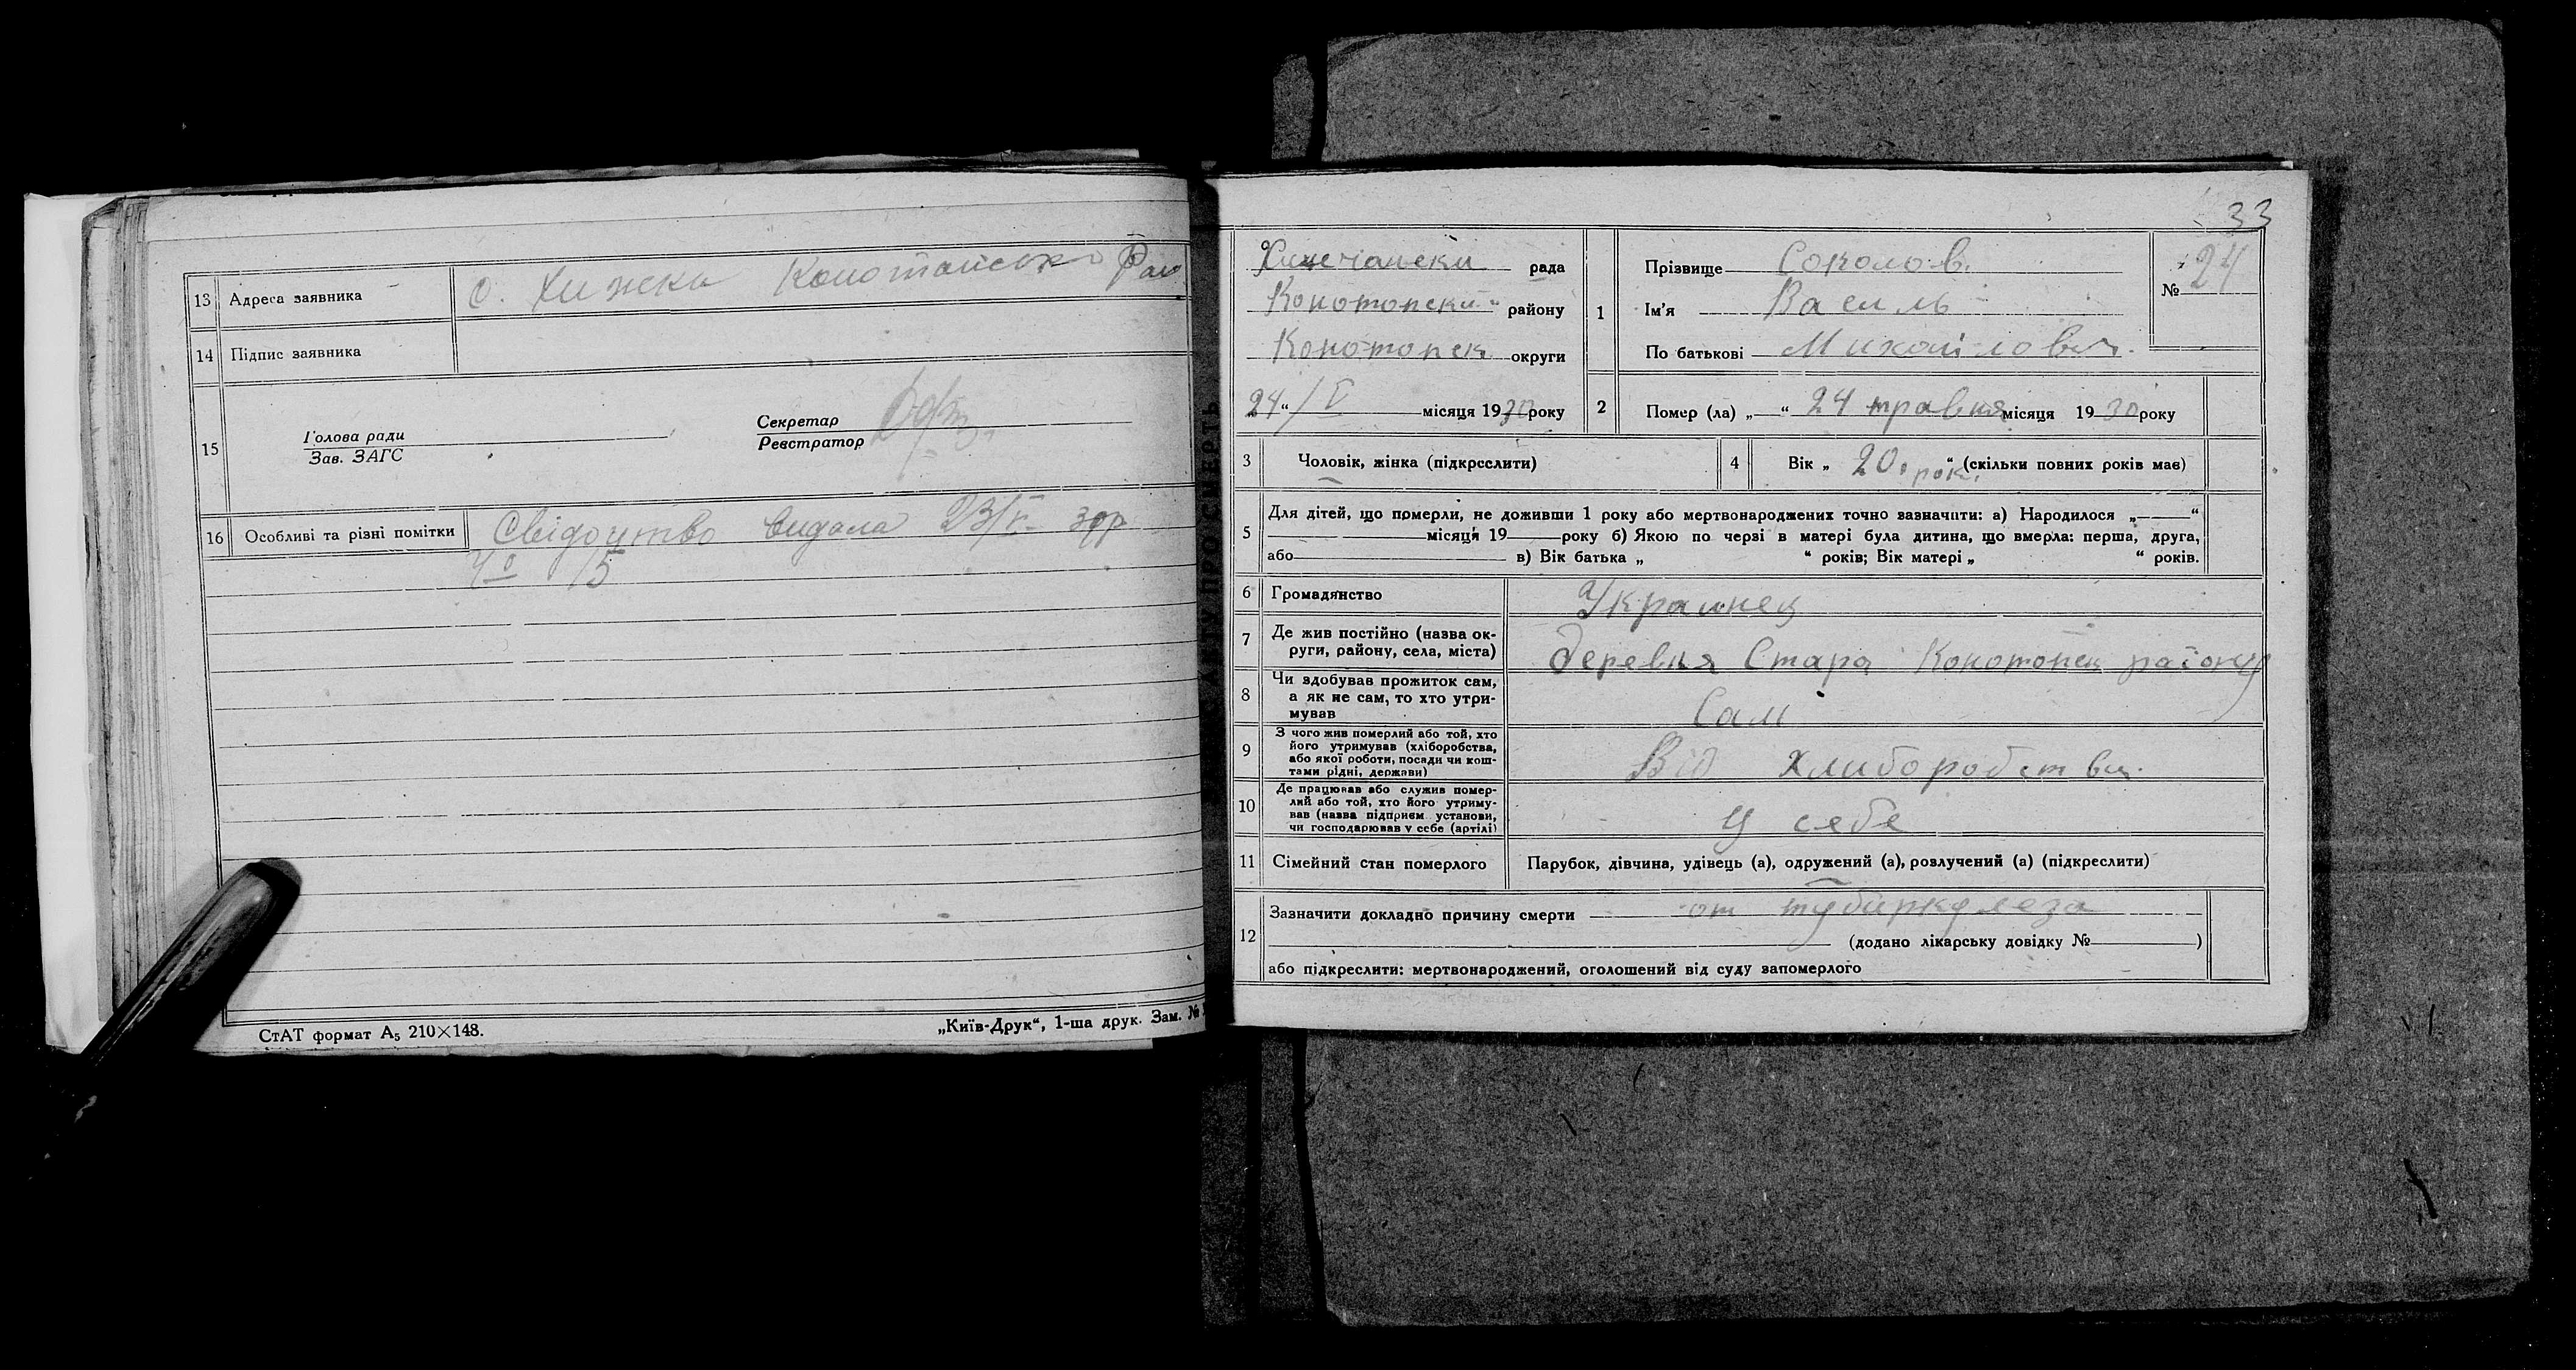 13 Адреса заявника с. Хижки Конотопсько Рай
14 Підпис заявника
15 Голова ради
Зав. ЗАГС
Секретар
Реєстратор
16 Особливі та різні помітки Свідоцтво видала 23/V 30р
№ 15
СтАТ формат А5 210×148.
„Київ-Друк“, 1-ша друк. Зам. №
33
рада
Конотопски району
Конотопск округи
24 “ /V місяця 1930 року
1 Прізвище Соколов
Ім'я Василь
По батькові Михайлович.
№ 24
2 Помер (ла) „—“ 24 травня місяця 1930 року
3 Чоловік, жінка (підкреслити)
4 Вік „ 20 рок. “ (скільки повних років має)
5 Для дітей, що померли, не доживши 1 року або мертвонароджених точно зазначити: а) Народилося „——“
місяця 19——року б) Якою по черзі в матері була дитина, що вмерла: перша, друга,
або в) Вік батька „ “ років; Вік матері „ “ років.
6 Громадянство Украинец
7 Де жив постійно (назва ок-
руги, району, села, міста) деревня Стара Конотопск району
8 Чи здобував прожиток сам,
а як не сам, то хто утри-
мував Сам
9 З чого жив померлий або той, хто
його утримував (хліборобства,
або якої роботи, посади чи кош-
тами рідні, держави) Від хлиборобства
10 Де працював або служив помер-
лий або той, хто його утриму-
вав (назва підприєм. установи,
чи господарював у себе (артілі) У себе
11 Сімейний стан померлого Парубок, дівчина, удівець (а), одружений (а), розлучений (а) (підкреслити)
12 Зазначити докладно причину смерти от тубиркулеза
(додано лікарську довідку №——)
або підкреслити: мертвонароджений, оголошений від суду запомерлого